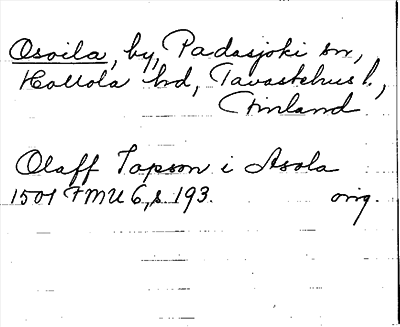 Osoila, by, Padasjoki sn,
Hollola hd, Tavastehus l.,
Finland
Olaff Tapson i Asola
1501 FMU 6, s. 193. orig.